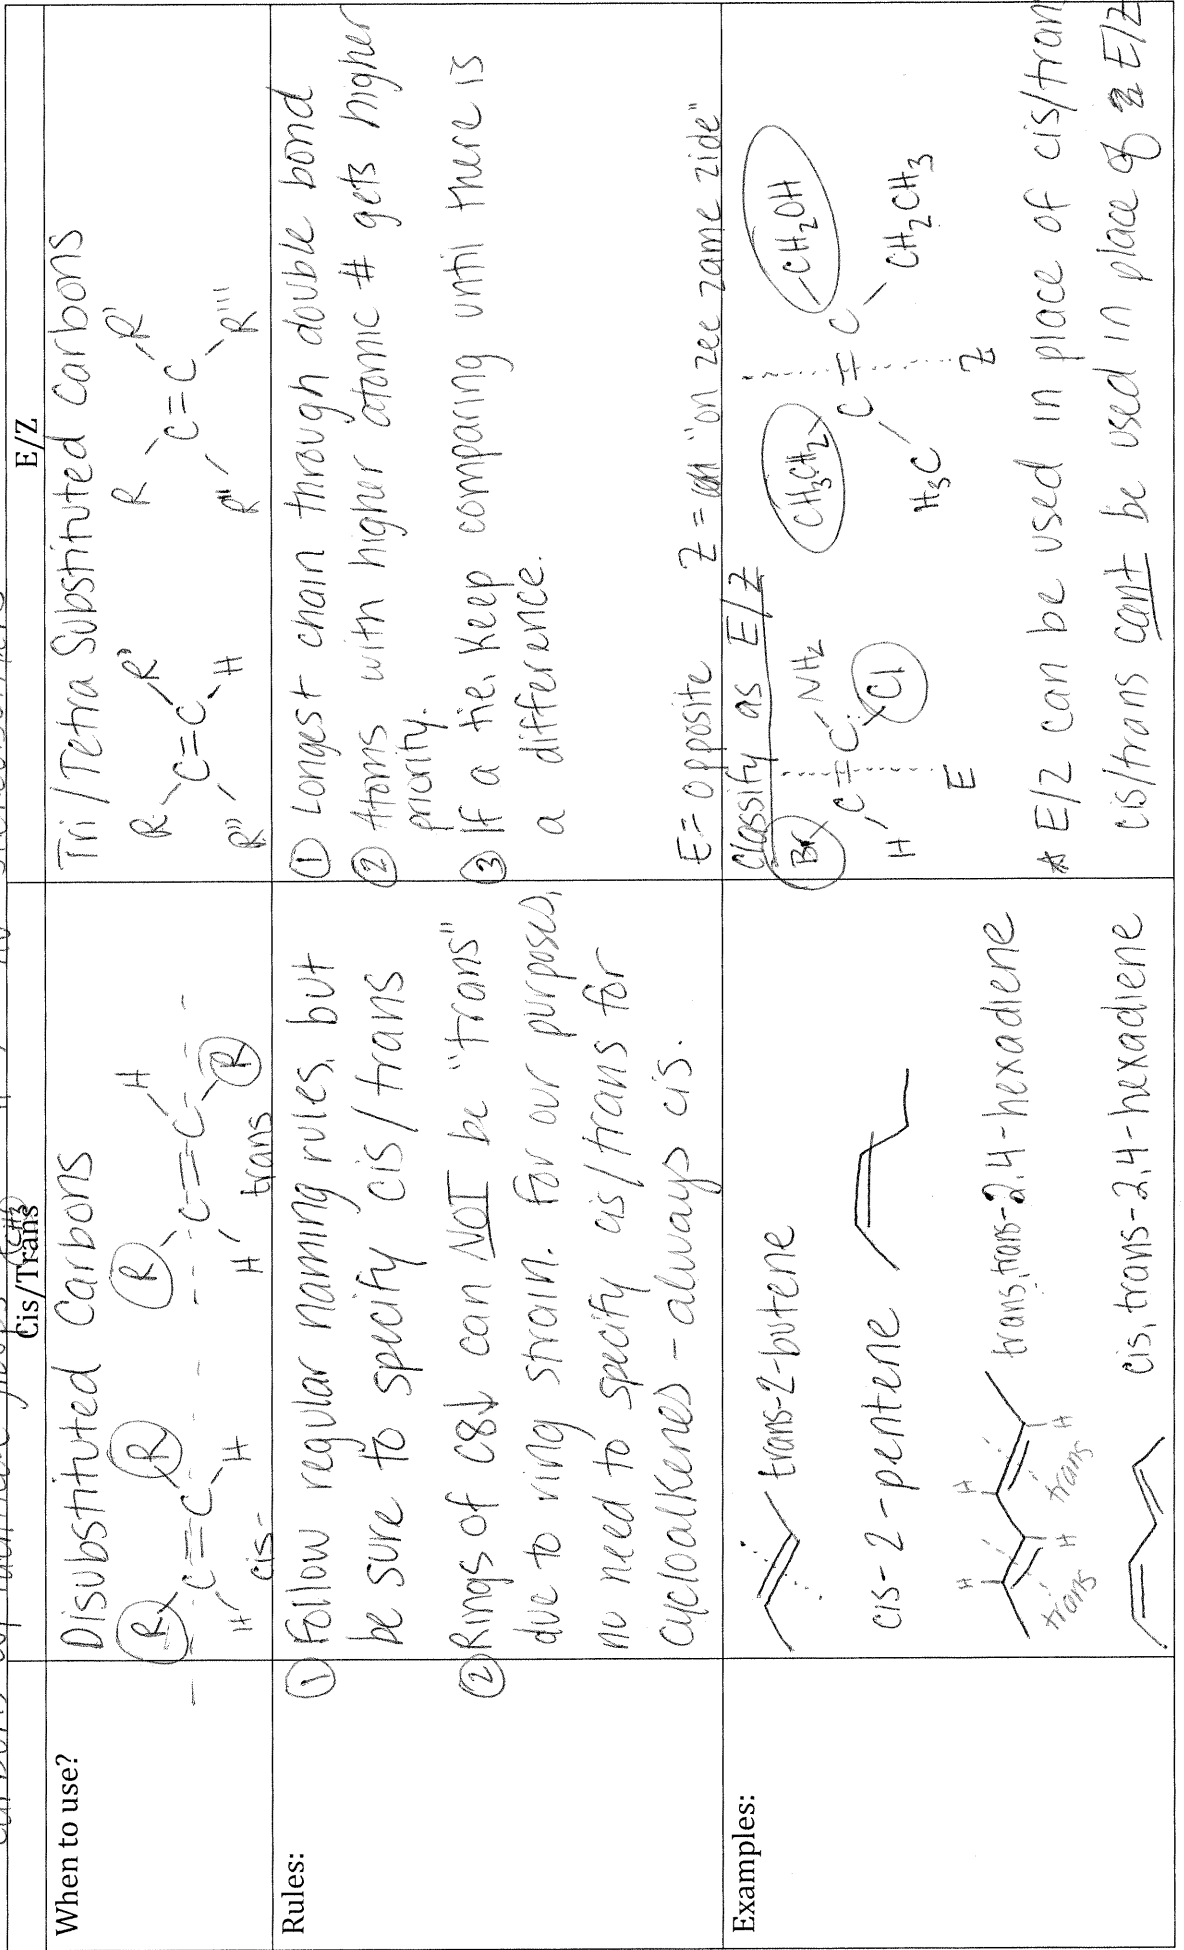 Cis/Trans
E/Z
When to use?
Disubstituted Carbons
R R
C=C
H H
cis-
R H
C=C
H R
trans
Tri/Tetra Substituted Carbons
R R'
C=C
R" H
R R'
C=C
R" R'''
Rules:
① Follow regular naming rules, but
be sure to specify cis/trans
② Rings of C8↓ can NOT be "trans"
due to ring strain. For our purposes,
no need to specify cis/trans for
cycloalkenes - always cis.
① Longest chain through double bond
② Atoms with higher atomic # gets higher
priority.
③ If a tie, keep comparing until there is
a difference.
E= opposite Z= "on zee zame zide"
Examples:
trans-2-butene
cis-2-pentene
H H
trans, trans-2,4-hexadiene
H H
trans trans
cis, trans-2,4-hexadiene
Classify as E/Z
Br NH₂
C=C
H Cl
E
CH₃CH₂ CH₂OH
C=C
H₃C CH₂CH₃
Z
* E/Z can be used in place of cis/tran
cis/trans can't be used in place of E/Z